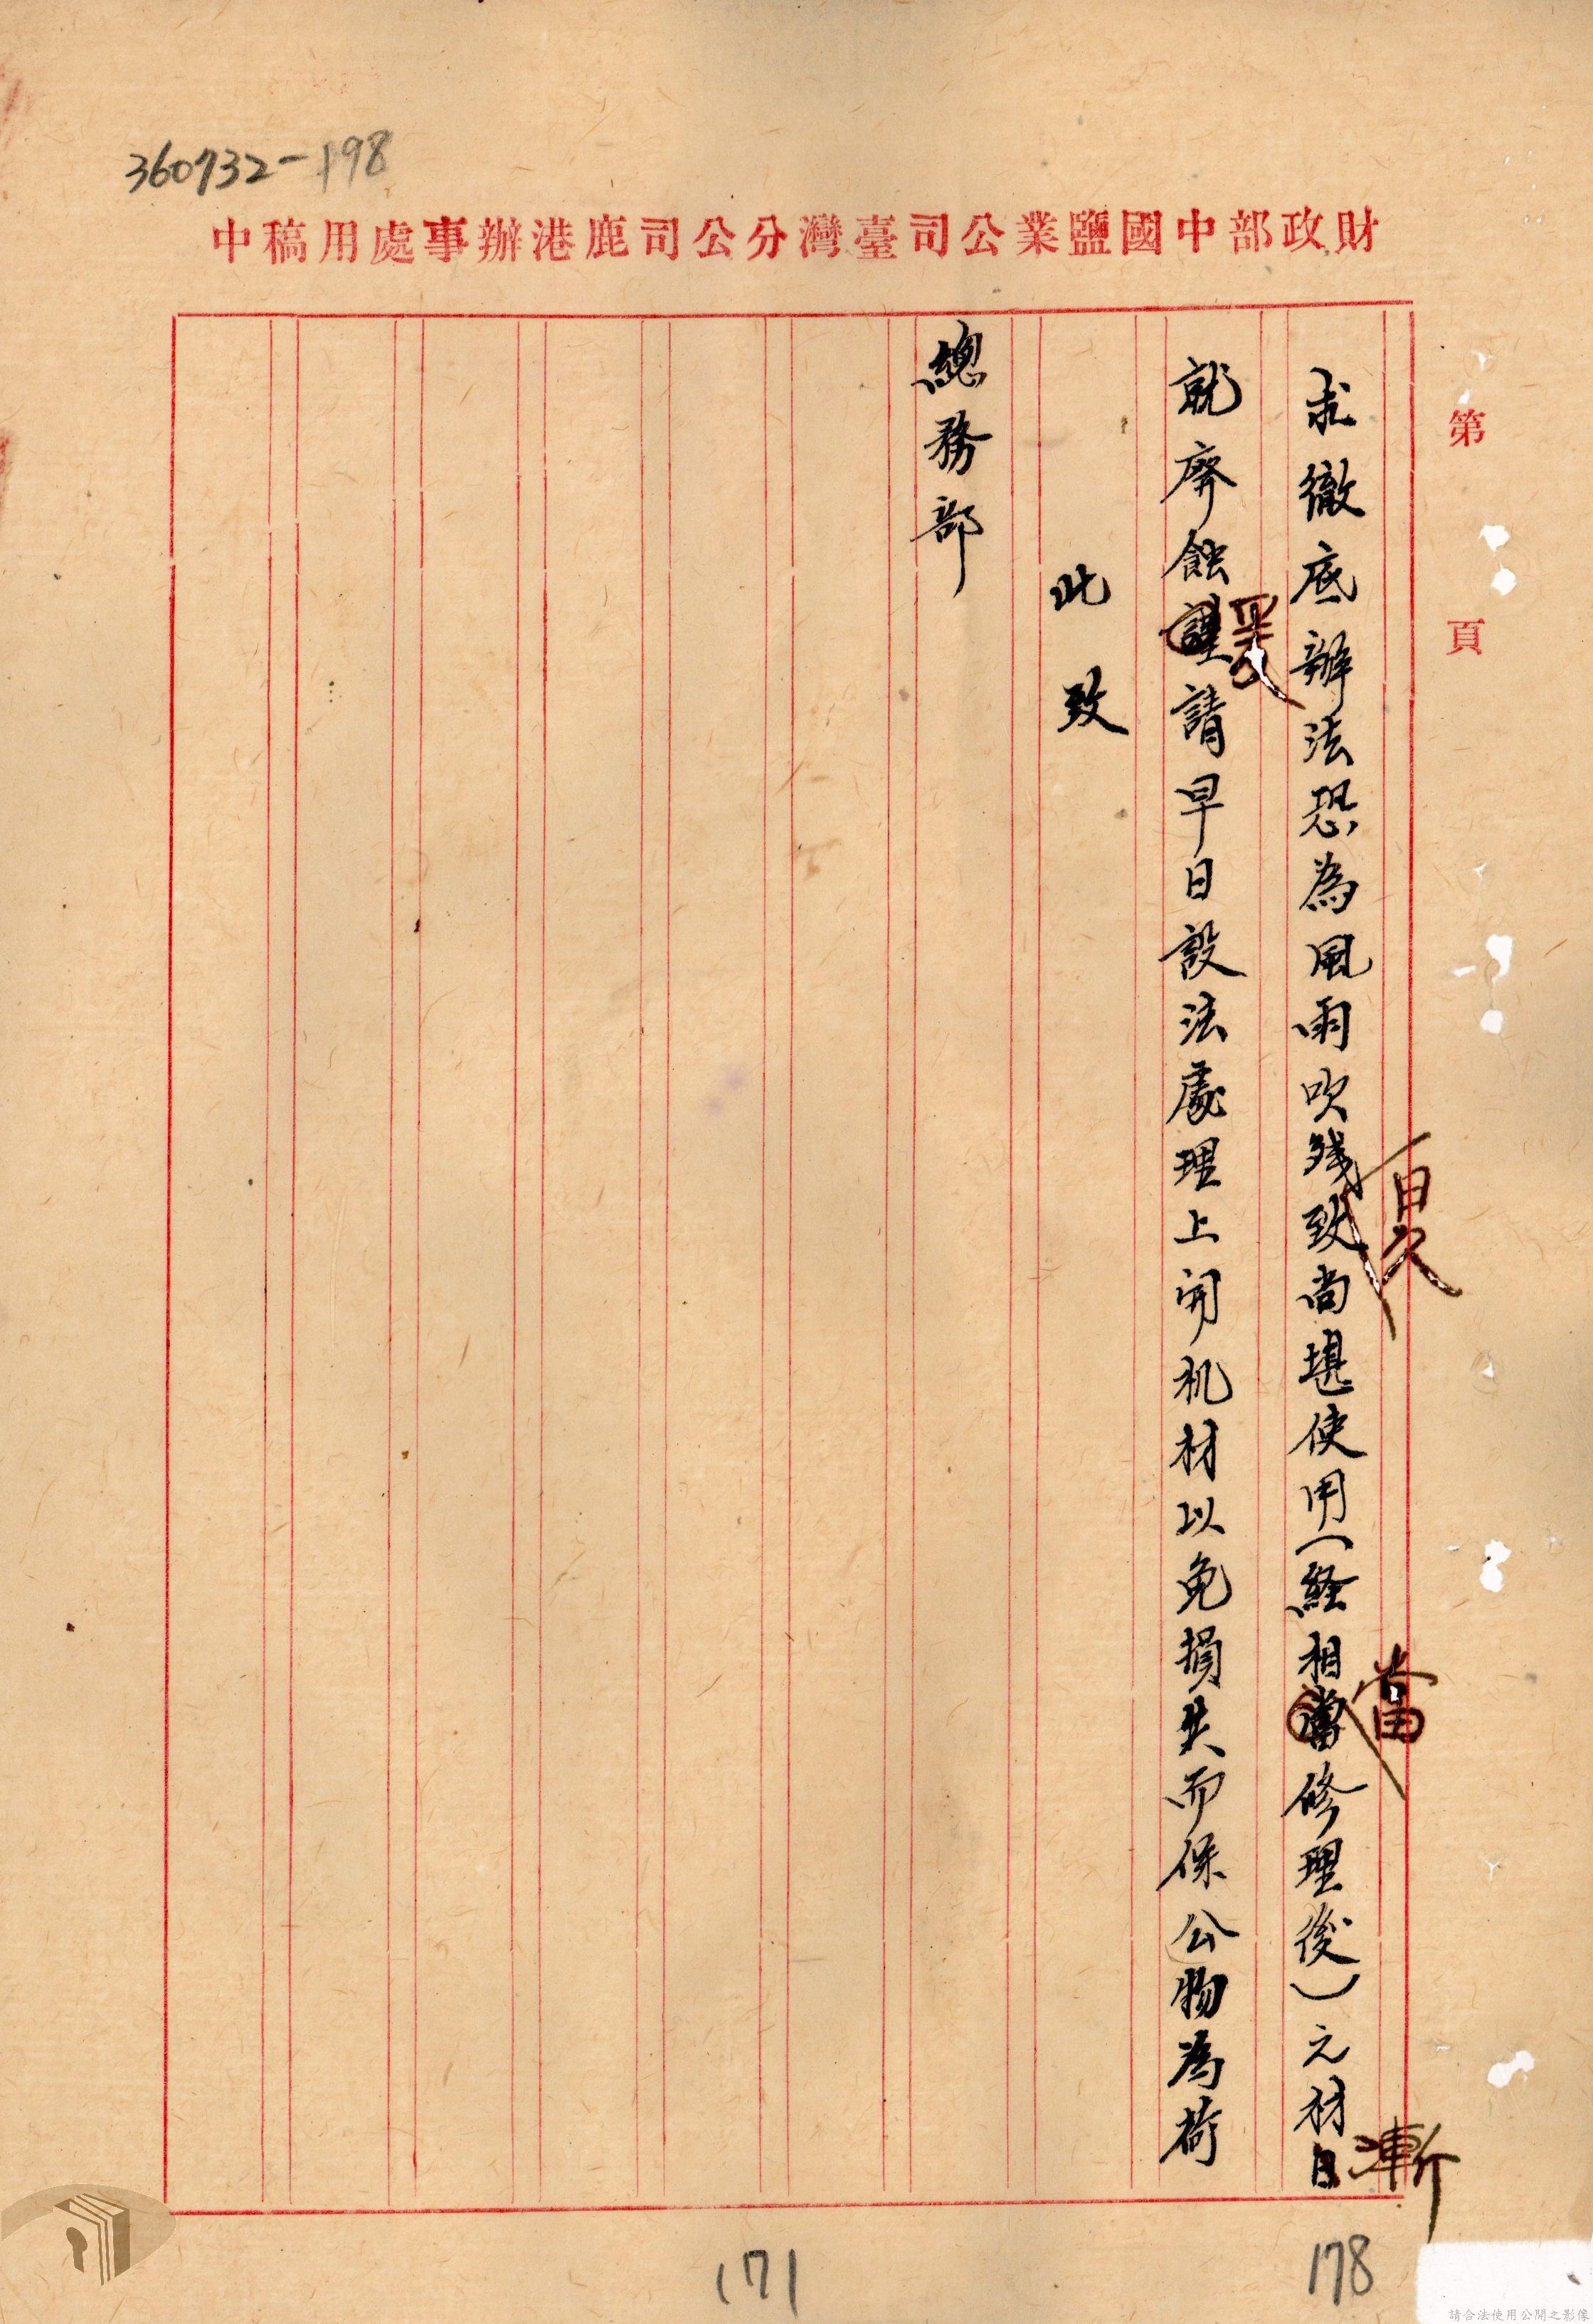 360732-198
財政部中國鹽業公司臺灣分公司鹿港辦事處用稿中
第 頁
求徹底辦法恐為風雨吹殘致尚堪使用(経相當修理後)之材日
日久
當
漸
就齊蝕謹請早日設法處理上開机材以免損失而保公物為荷
此致
總務部
171
178
請合法使用公開之影像